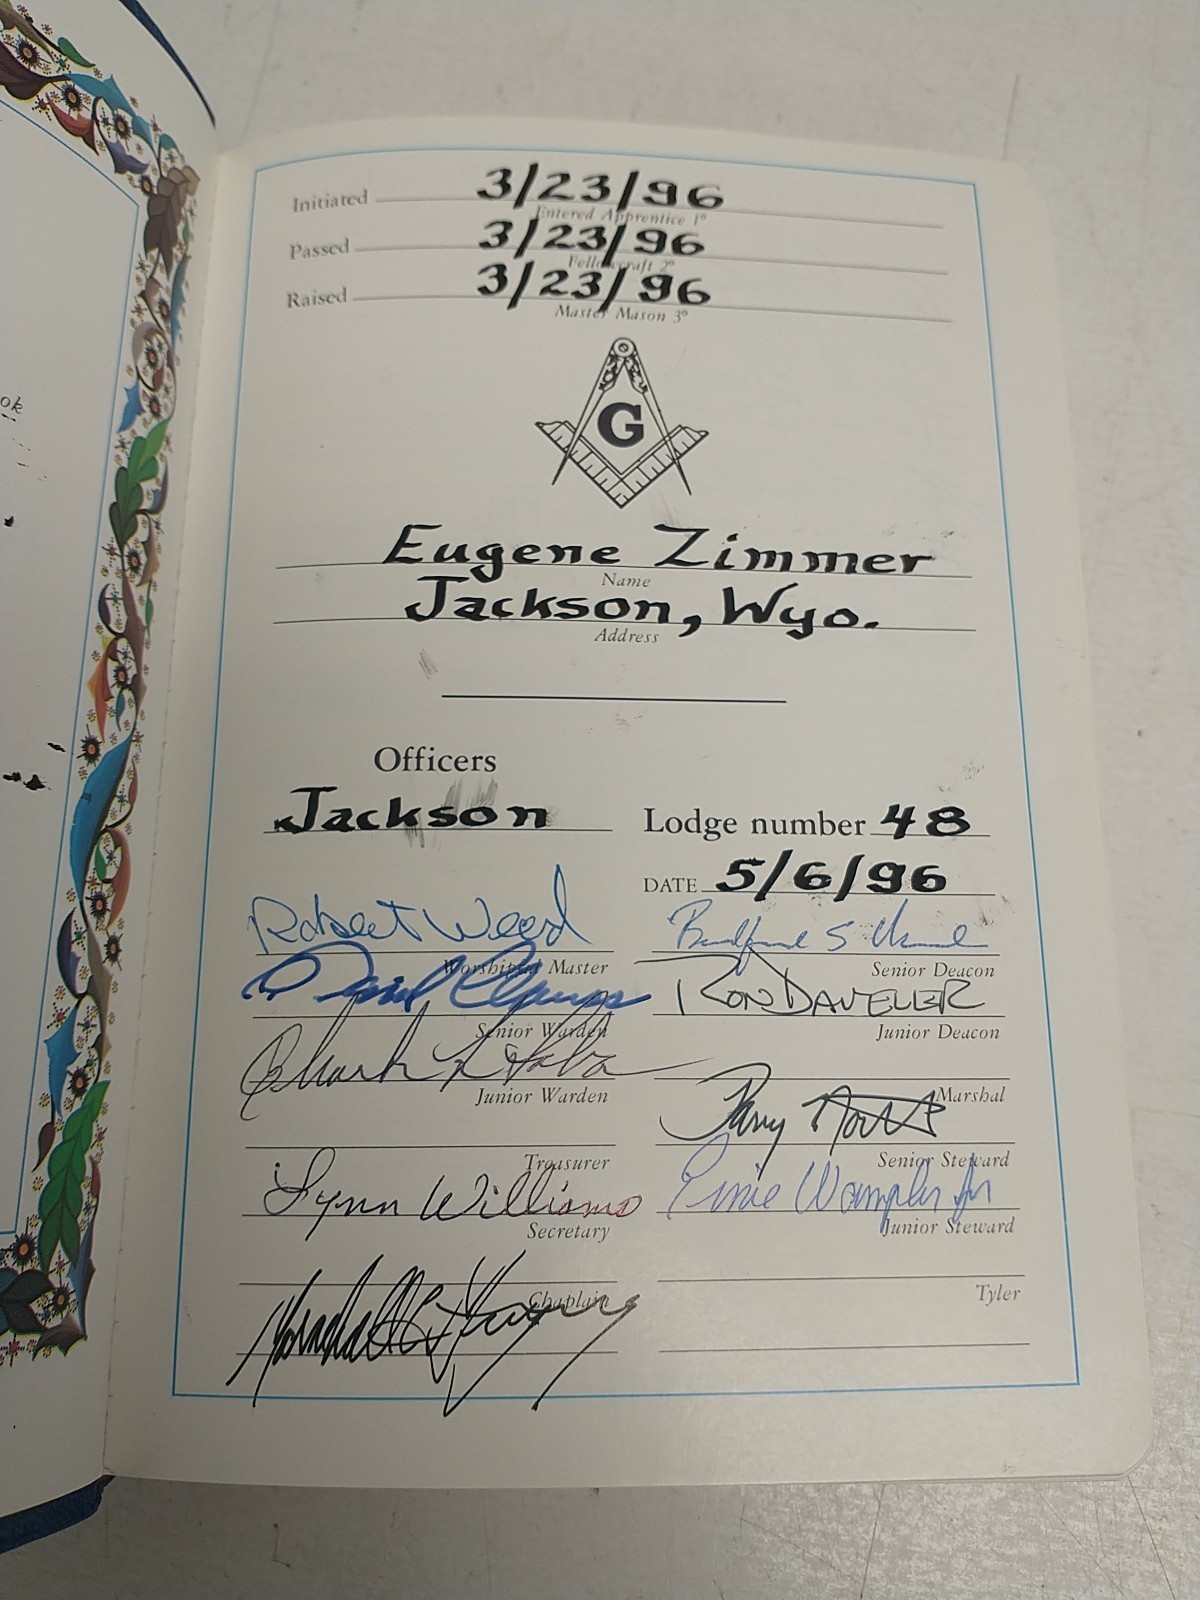 ok
Initiated 3/23/96
Entered Apprentice 1°
Passed 3/23/96
Fellowcraft 2°
Raised 3/23/96
Master Mason 3°
G
Eugene Zimmer
Name
Jackson, Wyo.
Address
Officers
Jackson Lodge number 48
DATE 5/6/96
Robert Weed
Worshipful Master Senior Deacon
Ron Daveler
Senior Warden Junior Deacon
Junior Warden Marshal
Treasurer Senior Steward
Lynn Williams Ernie Wampler Jr
Secretary Junior Steward
Chaplain Tyler